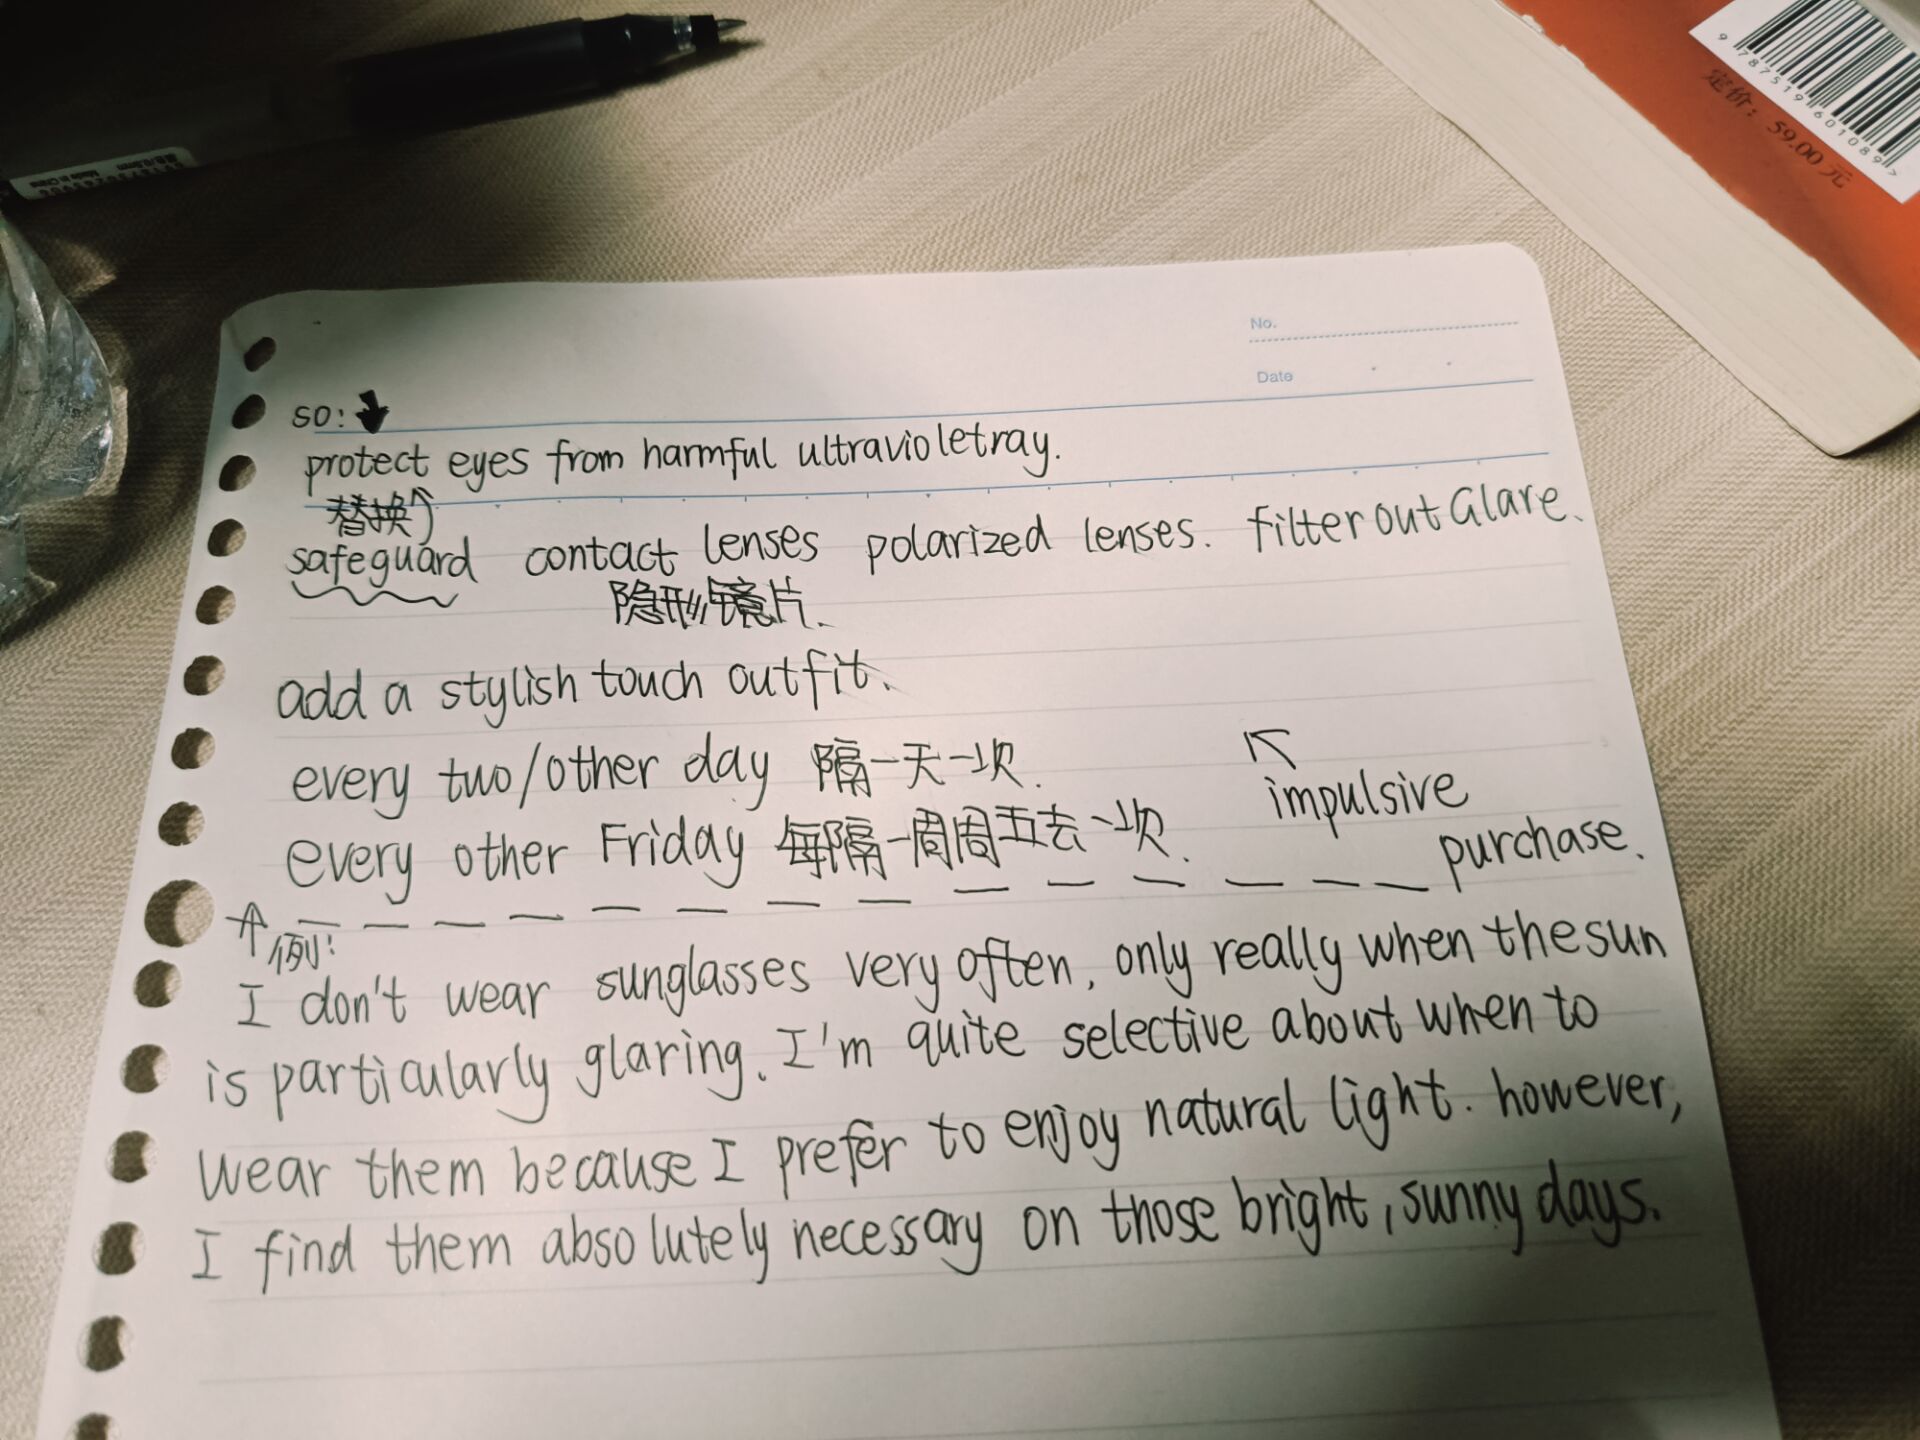 9 787519 601089 >
定价：59.00 元
Made in China
No.
Date
so: ↓
protect eyes from harmful ultravioletray.
替换↑
safeguard contact lenses polarized lenses. filter out Glare.
隐形镜片.
add a stylish touch outfit.
every two/other day 隔一天一次.
↖ impulsive
every other Friday 每隔一周周五去一次.
purchase.
↑例:
I don't wear sunglasses very often, only really when the sun
is particularly glaring. I'm quite selective about when to
wear them because I prefer to enjoy natural light. however,
I find them absolutely necessary on those bright, sunny days.